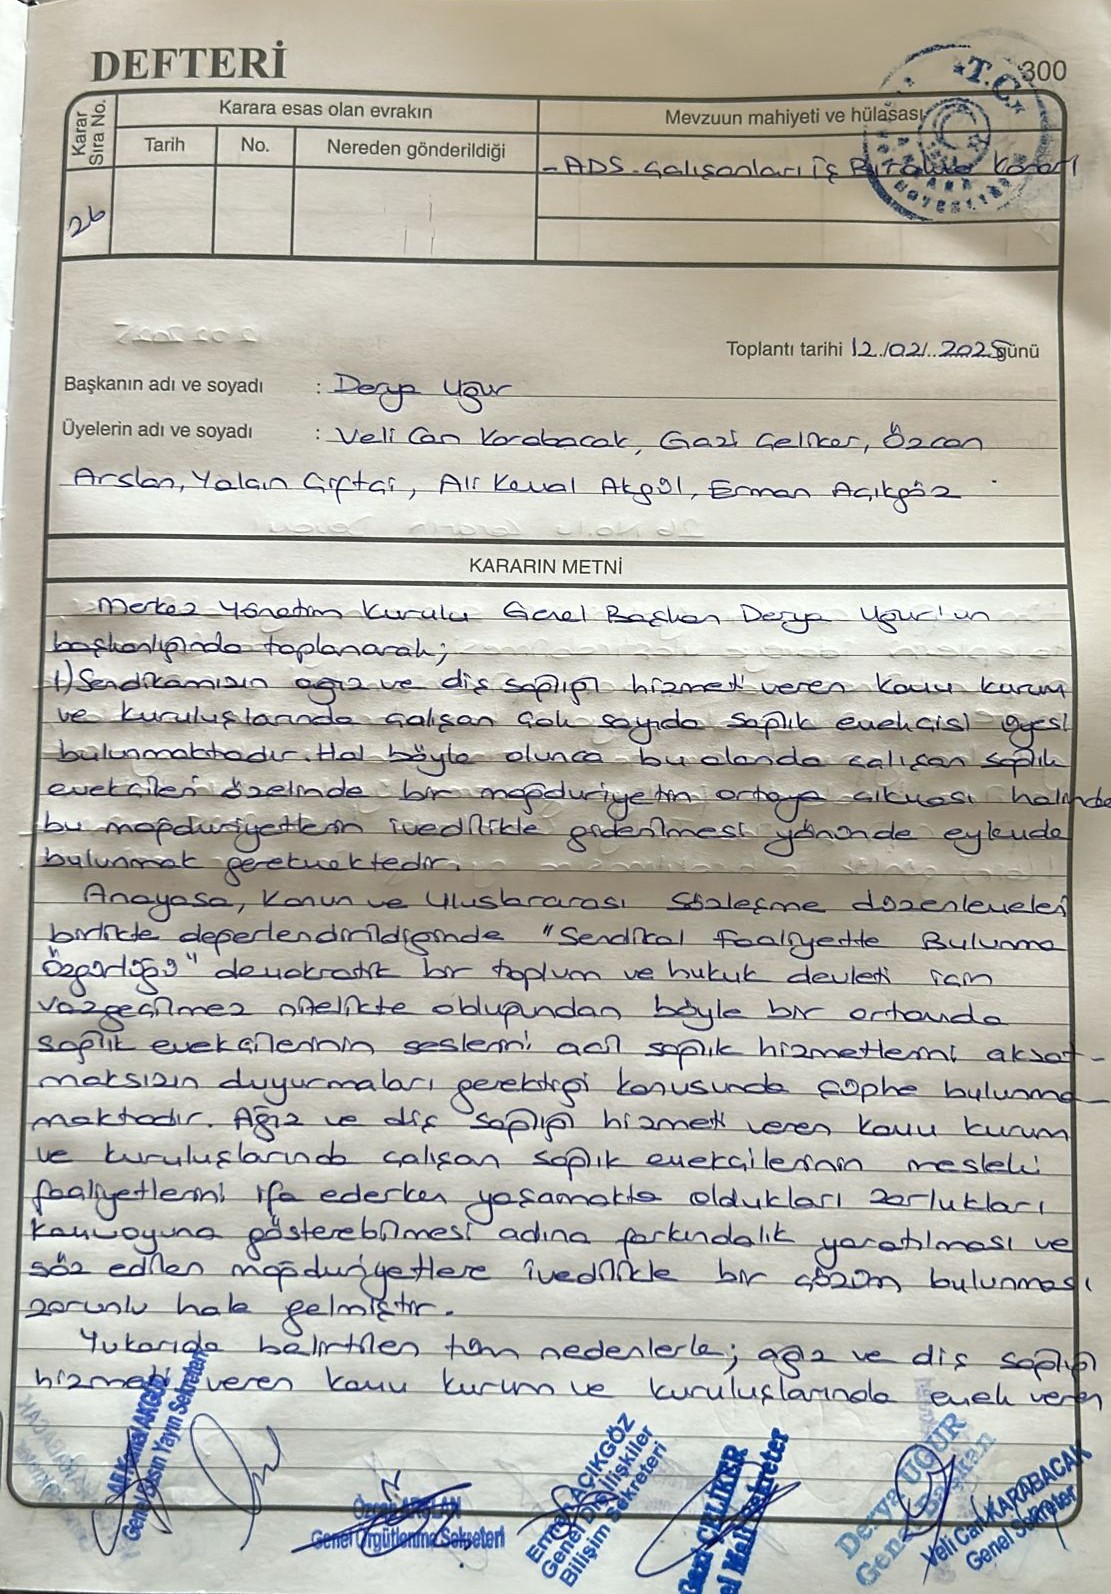 DEFTERİ
300
Karar Sıra No.
Karara esas olan evrakın
Mevzuun mahiyeti ve hülasası
Tarih
No.
Nereden gönderildiği
T.C.
- ADS. Çalışanları İş Bırakma Kararı
26
Toplantı tarihi 12./02/..2025 günü
Başkanın adı ve soyadı : Derya Uğur
Üyelerin adı ve soyadı : Veli Can Karabacak, Gazi Çeliker, Özcan
Arslan, Yalçın Çiftçi, Ali Kemal Akgül, Erman Açıkgöz
KARARIN METNİ
Merkez Yönetim Kurulu Genel Başkan Derya Uğur'un
başkanlığında toplanarak;
1) Sendikamızın ağız ve diş sağlığı hizmeti veren kamu kurum
ve kuruluşlarında çalışan çok sayıda sağlık emekçisi üyesi
bulunmaktadır. Hal böyle olunca bu alanda çalışan sağlık
emekçileri özelinde bir mağduriyetin ortaya çıkması halinde
bu mağduriyetlerin ivedilikle giderilmesi yönünde eylemde
bulunmak gerekmektedir.
Anayasa, Kanun ve Uluslararası Sözleşme düzenlemeleri
birlikte değerlendirildiğinde "Sendikal Faaliyette Bulunma
Özgürlüğü" demokratik bir toplum ve hukuk devleti için
vazgeçilmez nitelikte olduğundan böyle bir ortamda
sağlık emekçilerinin seslerini acil sağlık hizmetlerini aksat-
maksızın duyurmaları gerektiği konusunda şüphe bulunma-
maktadır. Ağız ve diş sağlığı hizmeti veren kamu kurum
ve kuruluşlarında çalışan sağlık emekçilerinin mesleki
faaliyetlerini ifa ederken yaşamakta oldukları zorlukları
kamuoyuna gösterebilmesi adına farkındalık yaratılması ve
söz edilen mağduriyetlere ivedilikle bir çözüm bulunması
zorunlu hale gelmiştir.
Yukarıda belirtilen tüm nedenlerle; ağız ve diş sağlığı
hizmeti veren kamu kurum ve kuruluşlarında emek veren
Ali Kemal AKGÜL
Genel Basın Yayın Sekreteri
Özcan ARSLAN
Genel Örgütlenme Sekreteri
Erman AÇIKGÖZ
Genel Dış İlişkiler
Bilişim Sekreteri
Gazi ÇELİKER
Genel Mali Sekreter
Derya UĞUR
Genel Başkan
Veli Can KARABACAK
Genel Sekreter